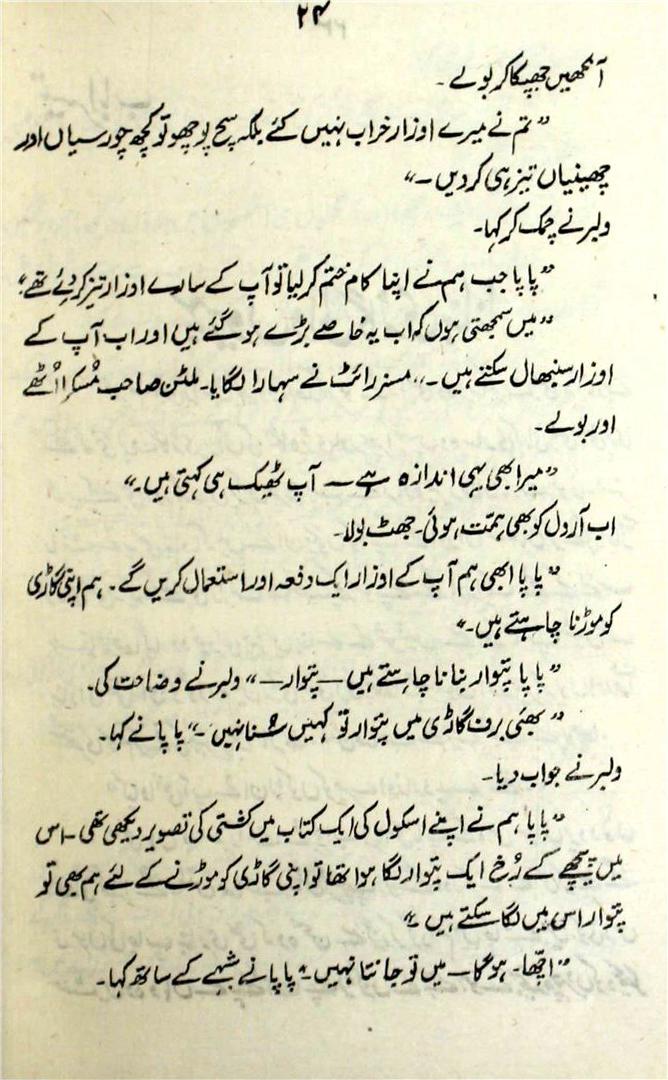 ۲۴
آنکھیں جھپکا کر بولے۔
”تم نے میرے اوزار خراب نہیں کئے بلکہ سچ پوچھو تو کچھ چورسیاں اور
چھینیاں تیز ہی کر دیں۔“
ولبر نے چمک کر کہا۔
”پاپا جب ہم نے اپنا کام ختم کر لیا تو آپ کے سارے اوزار تیز کر دئے تھے“
”میں سمجھتی ہوں کہ اب یہ خاصے بڑے ہو گئے ہیں اور اب آپ کے
اوزار سنبھال سکتے ہیں۔“ مسز رائٹ نے سہارا لگایا۔ ملٹن صاحب مُسکرا اُٹھے
اور بولے۔
”میرا بھی یہی اندازہ ہے — آپ ٹھیک ہی کہتی ہیں۔“
اب آرول کو بھی ہمّت ہوئی۔ جھٹ بولا۔
”پاپا ابھی ہم آپ کے اوزار ایک دفعہ اور استعمال کریں گے۔ ہم اپنی گاڑی
کو موڑنا چاہتے ہیں۔“
”پاپا پتوار بنانا چاہتے ہیں — پتوار —“ ولبر نے وضاحت کی۔
”بھئی برف گاڑی میں پتوار تو کہیں سُنا نہیں۔“ پاپا نے کہا۔
ولبر نے جواب دیا۔
”پاپا ہم نے اپنے اسکول کی ایک کتاب میں کشتی کی تصویر دیکھی تھی۔ اس
میں پیچھے کے رُخ ایک پتوار لگا ہوا تھا تو اپنی گاڑی کو موڑنے کے لئے ہم بھی تو
پتوار اس میں لگا سکتے ہیں۔“
”اچّھا۔ ہو گا — میں تو جانتا نہیں۔“ پاپا نے شبہے کے ساتھ کہا۔